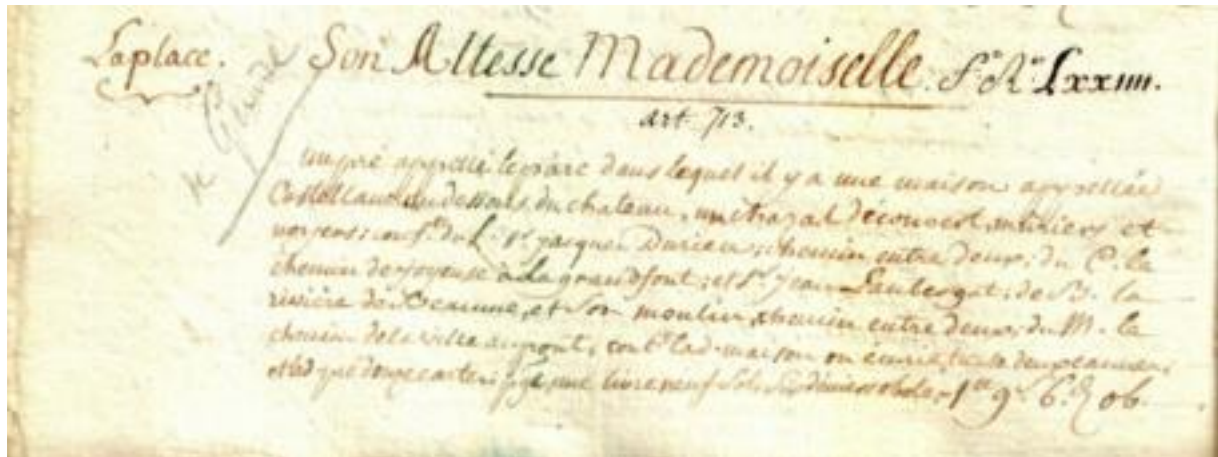 Laplace. Son Altesse Mademoiselle. Lxxiiii.
art. 713.
un pré appellé le parc dans lequel il y a une maison appellée
Castellanes au dessous du chateau, un chazal découvert, muriers et
noyers: conf.te du L. Sr. jacques Durieu, chemin entre deux; du C. le
chemin de joyeuse à La grandfont; et Sr. jean Lauberget; de B. la
rivière de Beaume, et son moulin, chemin entre deux; du M. le
chemin de la ville au pont, cont.t lad. maison ou écurie,
une livre neuf sols six deniers obole, 1 9 6 ob.